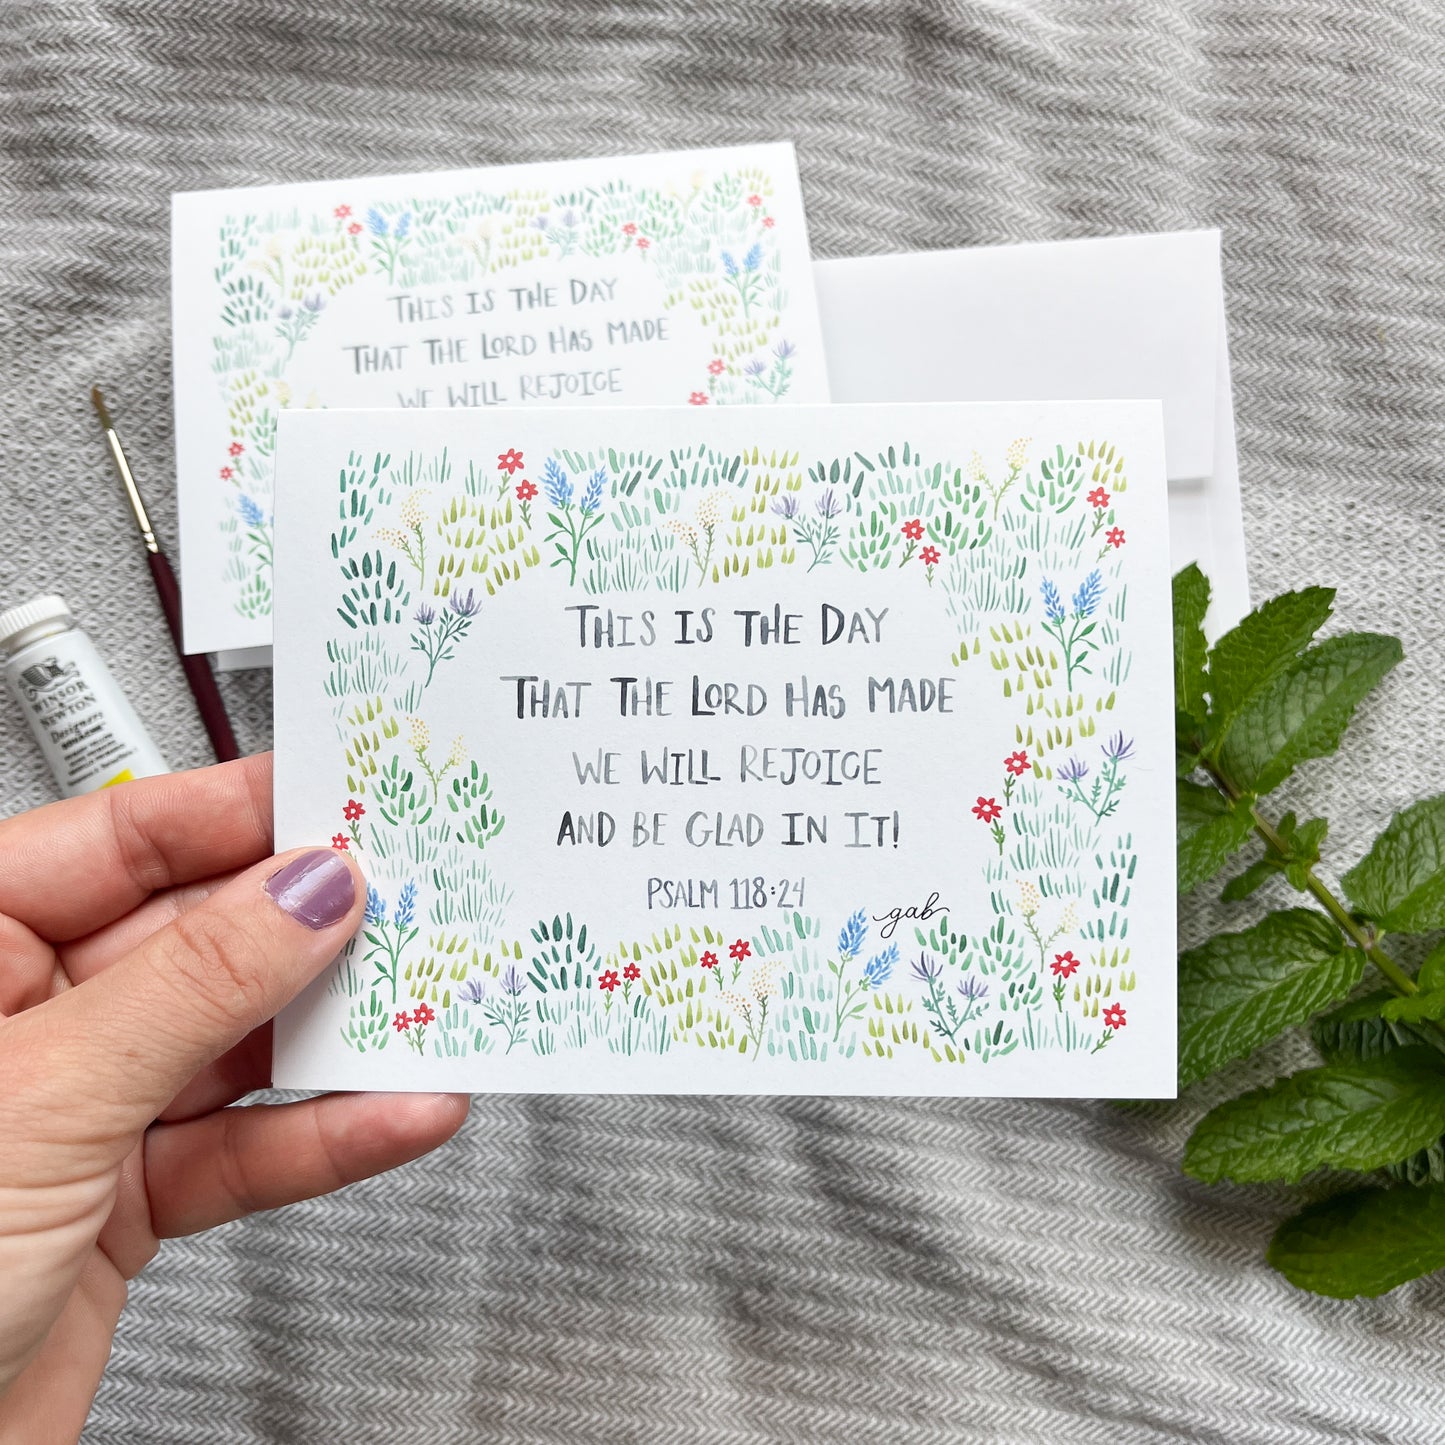 THIS IS THE DAY
THAT THE LORD HAS MADE
WE WILL REJOICE
THIS IS THE DAY
THAT THE LORD HAS MADE
WE WILL REJOICE
AND BE GLAD IN IT!
PSALM 118:24
gab
WINSOR
& NEWTON
Designers